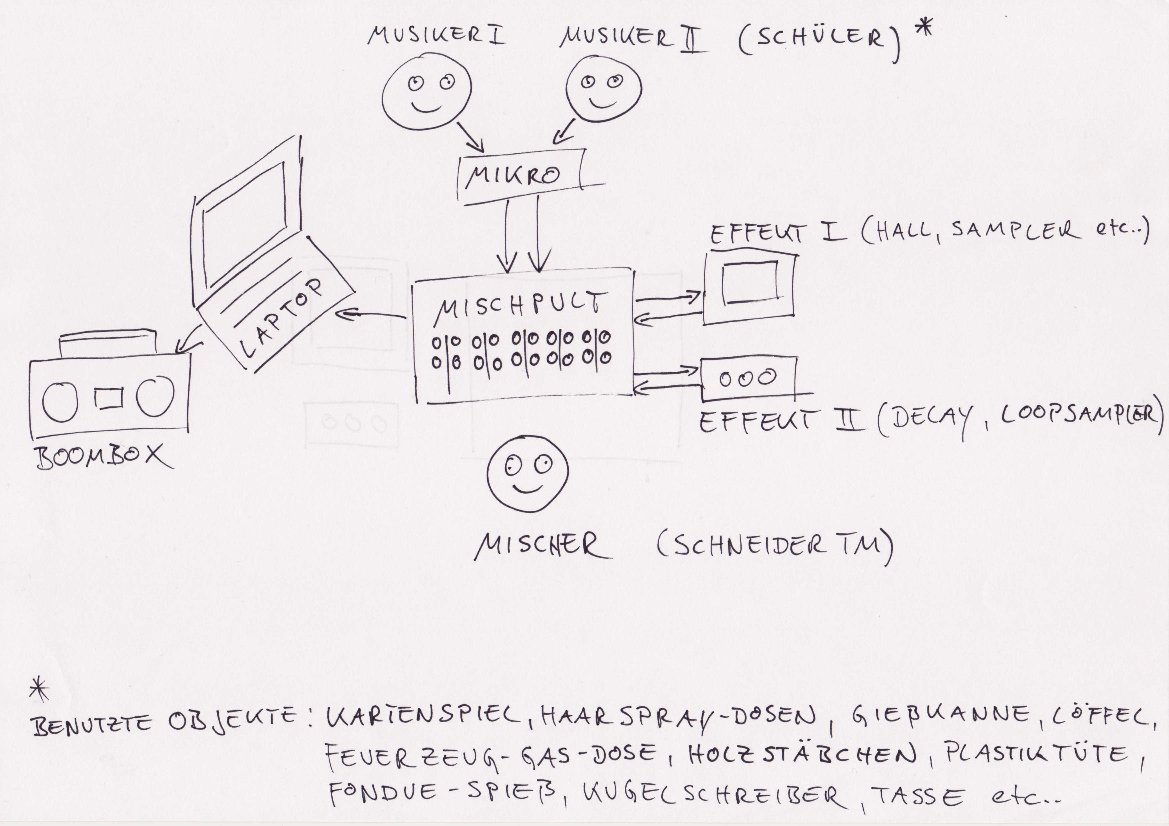 MUSIKER I MUSIKER II (SCHÜLER) *
MIKRO
EFFEKT I (HALL, SAMPLER etc..)
LAPTOP
MISCHPULT
EFFEKT II (DECAY, LOOPSAMPLER)
BOOMBOX
MISCHER (SCHNEIDER TM)
*
BENUTZTE OBJEKTE: KARTENSPIEL, HAARSPRAY-DOSEN, GIEßKANNE, LÖFFEL,
FEUERZEUG-GAS-DOSE, HOLZSTÄBCHEN, PLASTIKTÜTE,
FONDUE-SPIEß, KUGELSCHREIBER, TASSE etc..